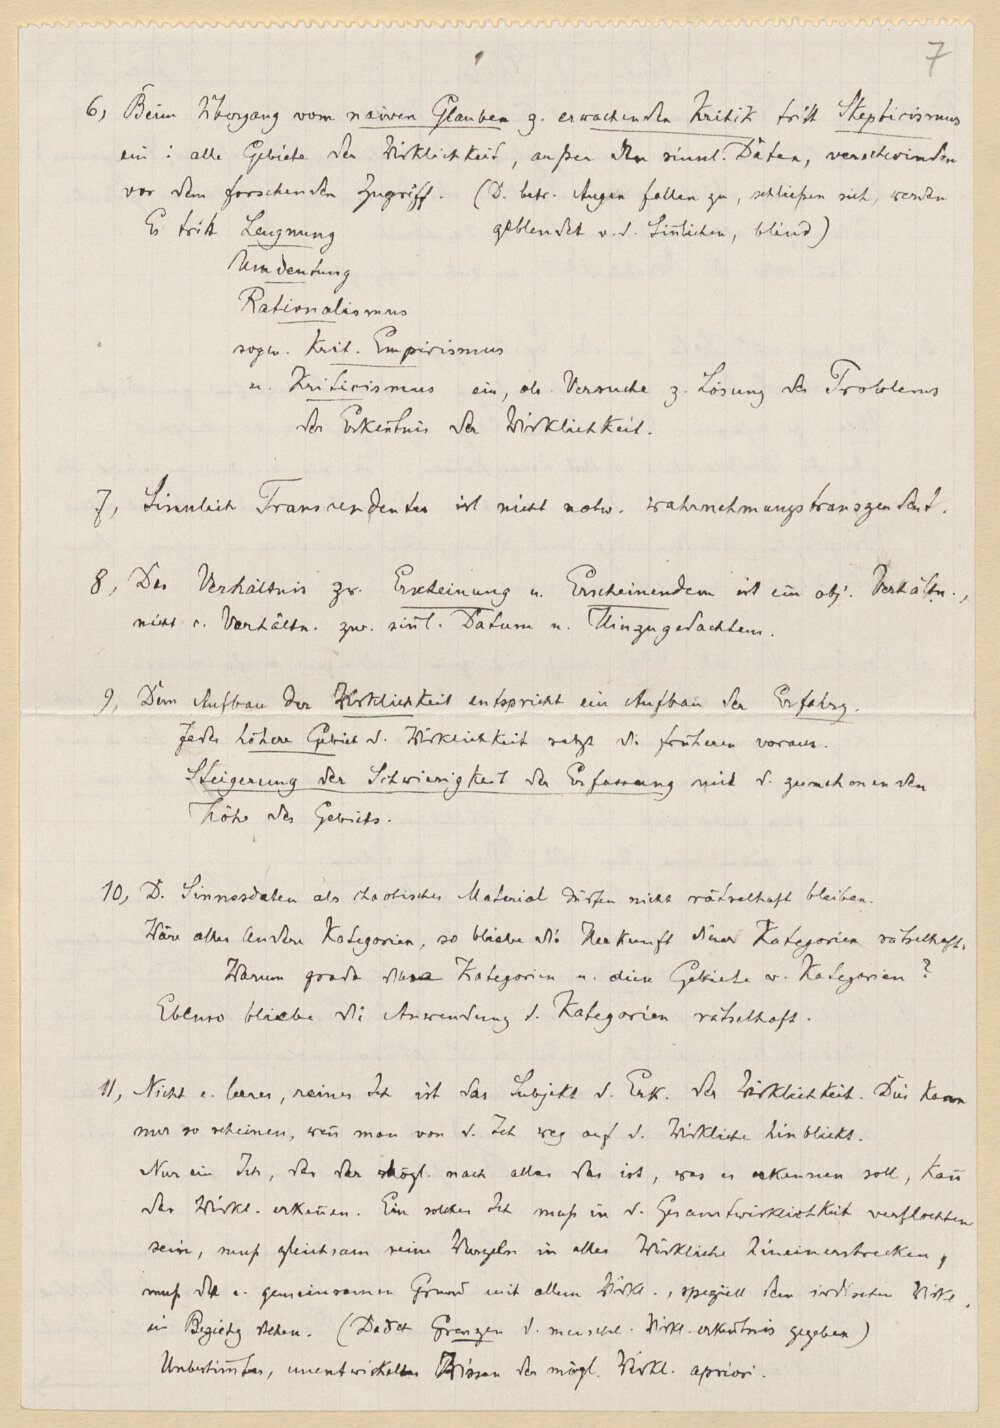 7
6, Beim Übergang vom naiven Glauben z. erwachenden Kritik tritt Skepticismus
ein: alle Gebiete der Wirklichkeit, außer den sinnl. Daten, verschwinden
vor dem forschenden Zugriff. (D. betr. Augen fallen zu, schließen sich, werden
Es tritt Leugnung geblendet v. d. Sinlichen, blind)
Umdeutung
Rationalismus
sogen. Krit. Empirismus
u. Kriticismus ein, als Versuche z. Lösung des Problems
der Erkentnis der Wirklichkeit.
7, Sinnlich Transcendentes ist nicht notw. wahrnehmungstranszendent.
8, Das Verhältnis zw. Erscheinung u. Erscheinendem ist ein obj. Verhältn.,
nicht e. Verhältn. zw. sinl. Datum u. Hinzugedachtem.
9, Dem Aufbau der Wirklichkeit entspricht ein Aufbau der Erfahrg.
Jedes höhere Gebiet d. Wirklichkeit setzt die früheren voraus.
Steigerung der Schwierigkeit der Erfassung mit d. zunehmenden
Höhe des Gebiets.
10, D. Sinnesdaten als chaotisches Material dürfen nicht rätselhaft bleiben.
Wäre alles Andere Kategorien, so bliebe die Herkunft dieser Kategorien rätselhaft.
Warum grade diese Kategorien u. diese Gebiete v. Kategorien?
Ebenso bliebe die Anwendung d. Kategorien rätselhaft.
11, Nicht e. leeres, reines Ich ist das Subjekt d. Erk. der Wirklichkeit. Dies kann
nur so scheinen, wen man von d. Ich weg auf d. Wirkliche hinblickt.
Nur ein Ich, das der Mögl. nach alles das ist, was es erkennen soll, kan
das Wirkl. erkenen. Ein solches Ich muß in d. Gesamtwirklichkeit verflochten
sein, muß gleichsam seine Wurzeln in alles Wirkliche hineinerstrecken,
muß d. e. gemeinsamen Grund mit allem Wirkl., speziell dem irdischen Wirkl.
in Beziehg stehen. (Dadch Grenzen d. menschl. Wirkl.erkentnis gegeben)
Unbestimtes, unentwickeltes Wissen des mögl. Wirkl. apriori.